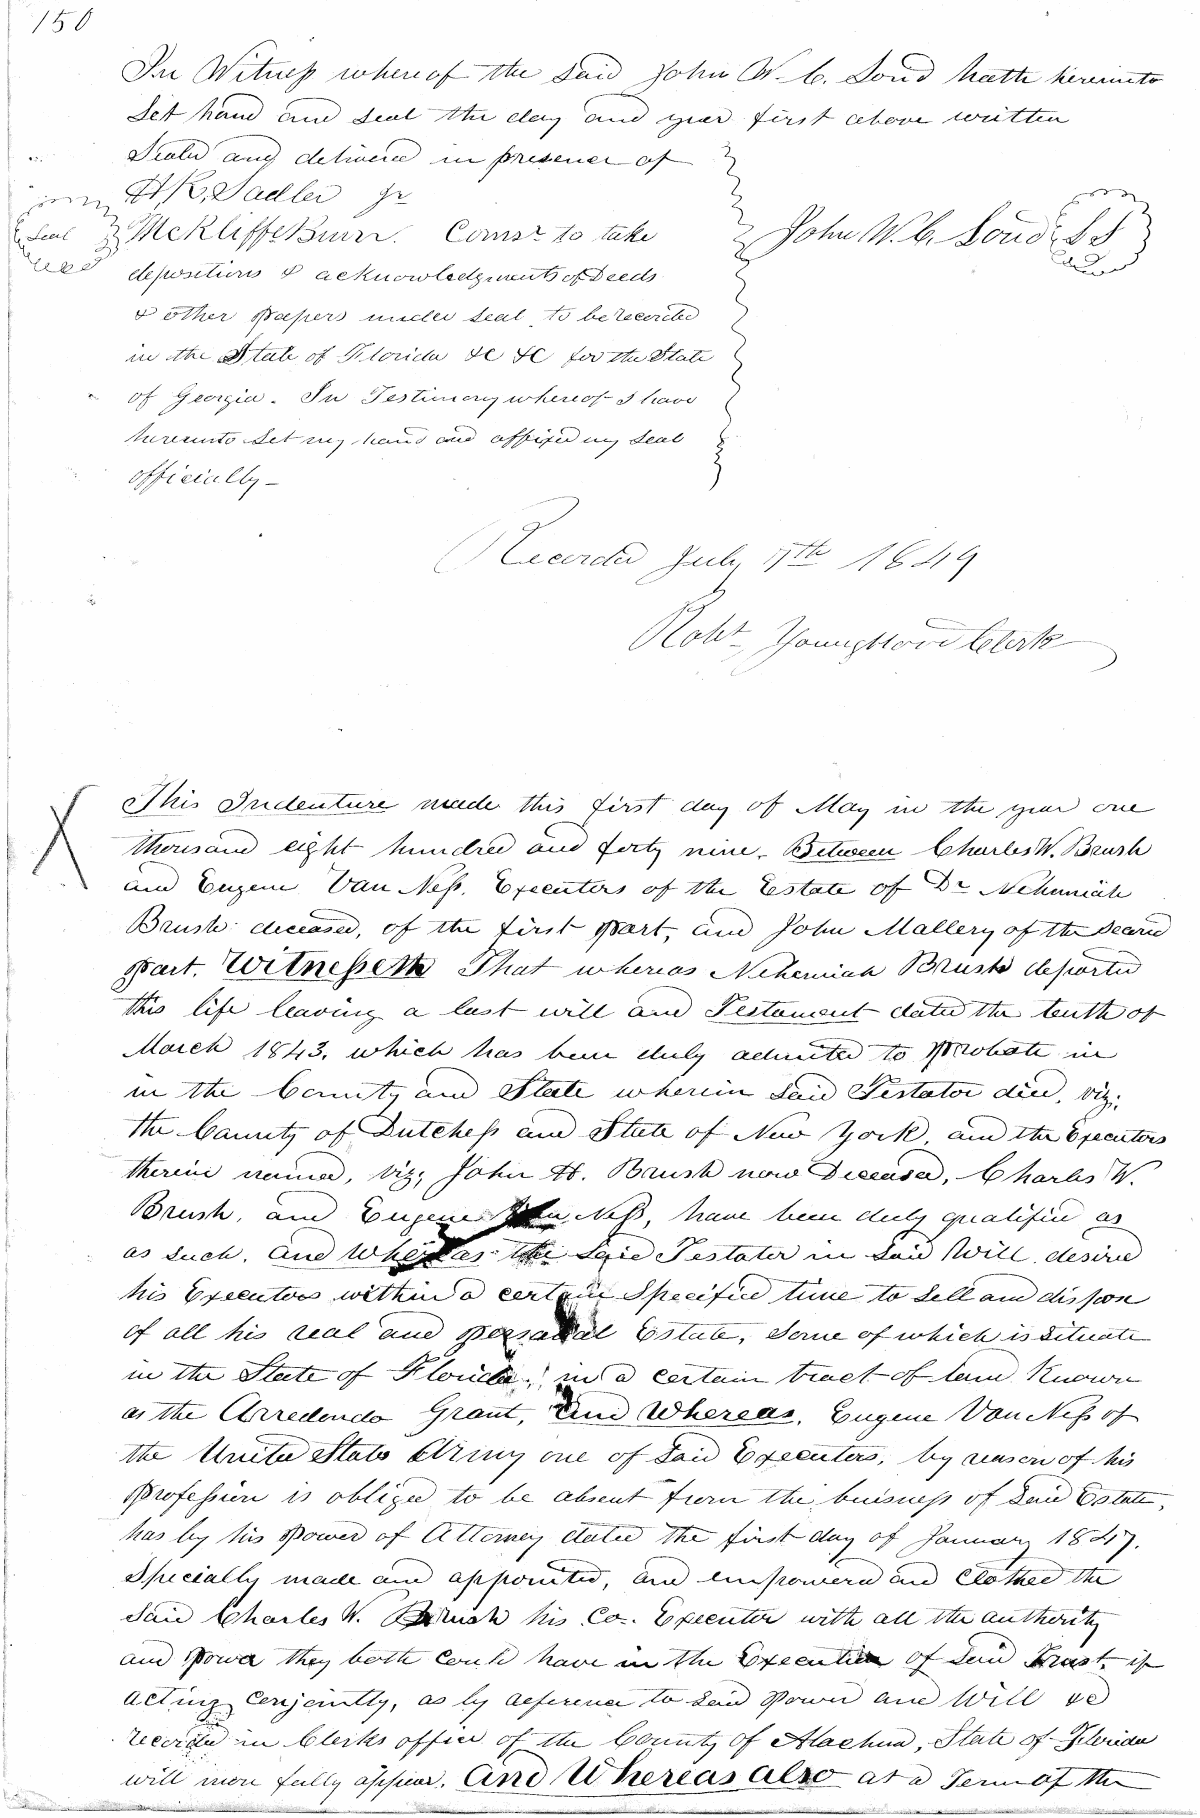 150
In Witness whereof the said John W. C. Loud hath hereunto
Set hand and seal the day and year first above written
Seald and delivered in presence of
H. R. Sadler Jr
Seal
McKliffe Burr. Comsr to take
John W. C. Loud LS
depositions & acknowledgments of Deeds
& other papers under seal to be recorded
in the State of Florida &c &c for the State
of Georgia. In Testimony whereof I have
hereunto Set my hand and affixed my seal
officially_
Recorded July 17th 1849
Robt Youngblood Clerk
This Indenture made this first day of May in the year one
thousand eight hundred and forty nine. Between Charles W. Brush
and Eugene Van Ness, Executors of the Estate of Dr Nehemiah
Brush deceased, of the first part, and John Mallery of the second
part. Witnesseth That whereas Nehemiah Brush departed
this life leaving a last will and Testament dated the tenth of
March 1843, which has been duly admitted to Probate in
in the County and State wherein said Testator died, viz;
the County of Dutchess and State of New York, and the Executors
therein named, viz; John H. Brush now Deceased, Charles W.
Brush, and Eugene Van Ness, have been duly qualified as
as such. And Whereas the said Testator in said Will desired
his Executors within a certain Specified time to Sell and dispose
of all his real and personal Estate, some of which is situate
in the State of Florida, in a certain tract of land Known
as the Arredondo Grant, And Whereas, Eugene Van Ness of
the United States Army one of said Executors, by reason of his
Profession is obliged to be absent from the buisness of said Estate,
has by his Power of Attorney dated the first day of January 1847,
specially made and appointed, and empowered and Clothed the
said Charles W. Brush his Co. Executor with all the authority
and power they both could have in the Execution of said Trust, if
acting conjointly, as by reference to said Power and Will &c
recorded in Clerks office of the County of Alachua, State of Florida
will more fully appear. And Whereas also at a Term of the